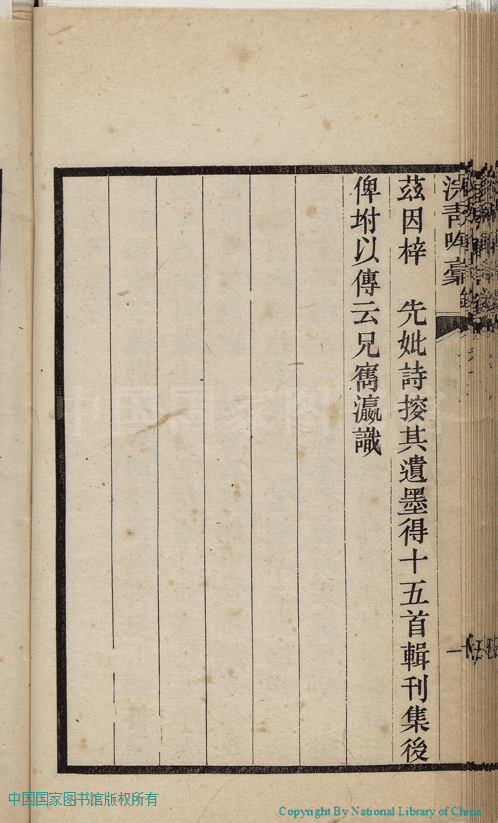 浣青吟藁
茲因梓 先妣詩㨮其遺墨得十五首輯刊集後
俾坿以傳云兄寯瀛識
中国国家图书馆版权所有
Copyright By National Library of China